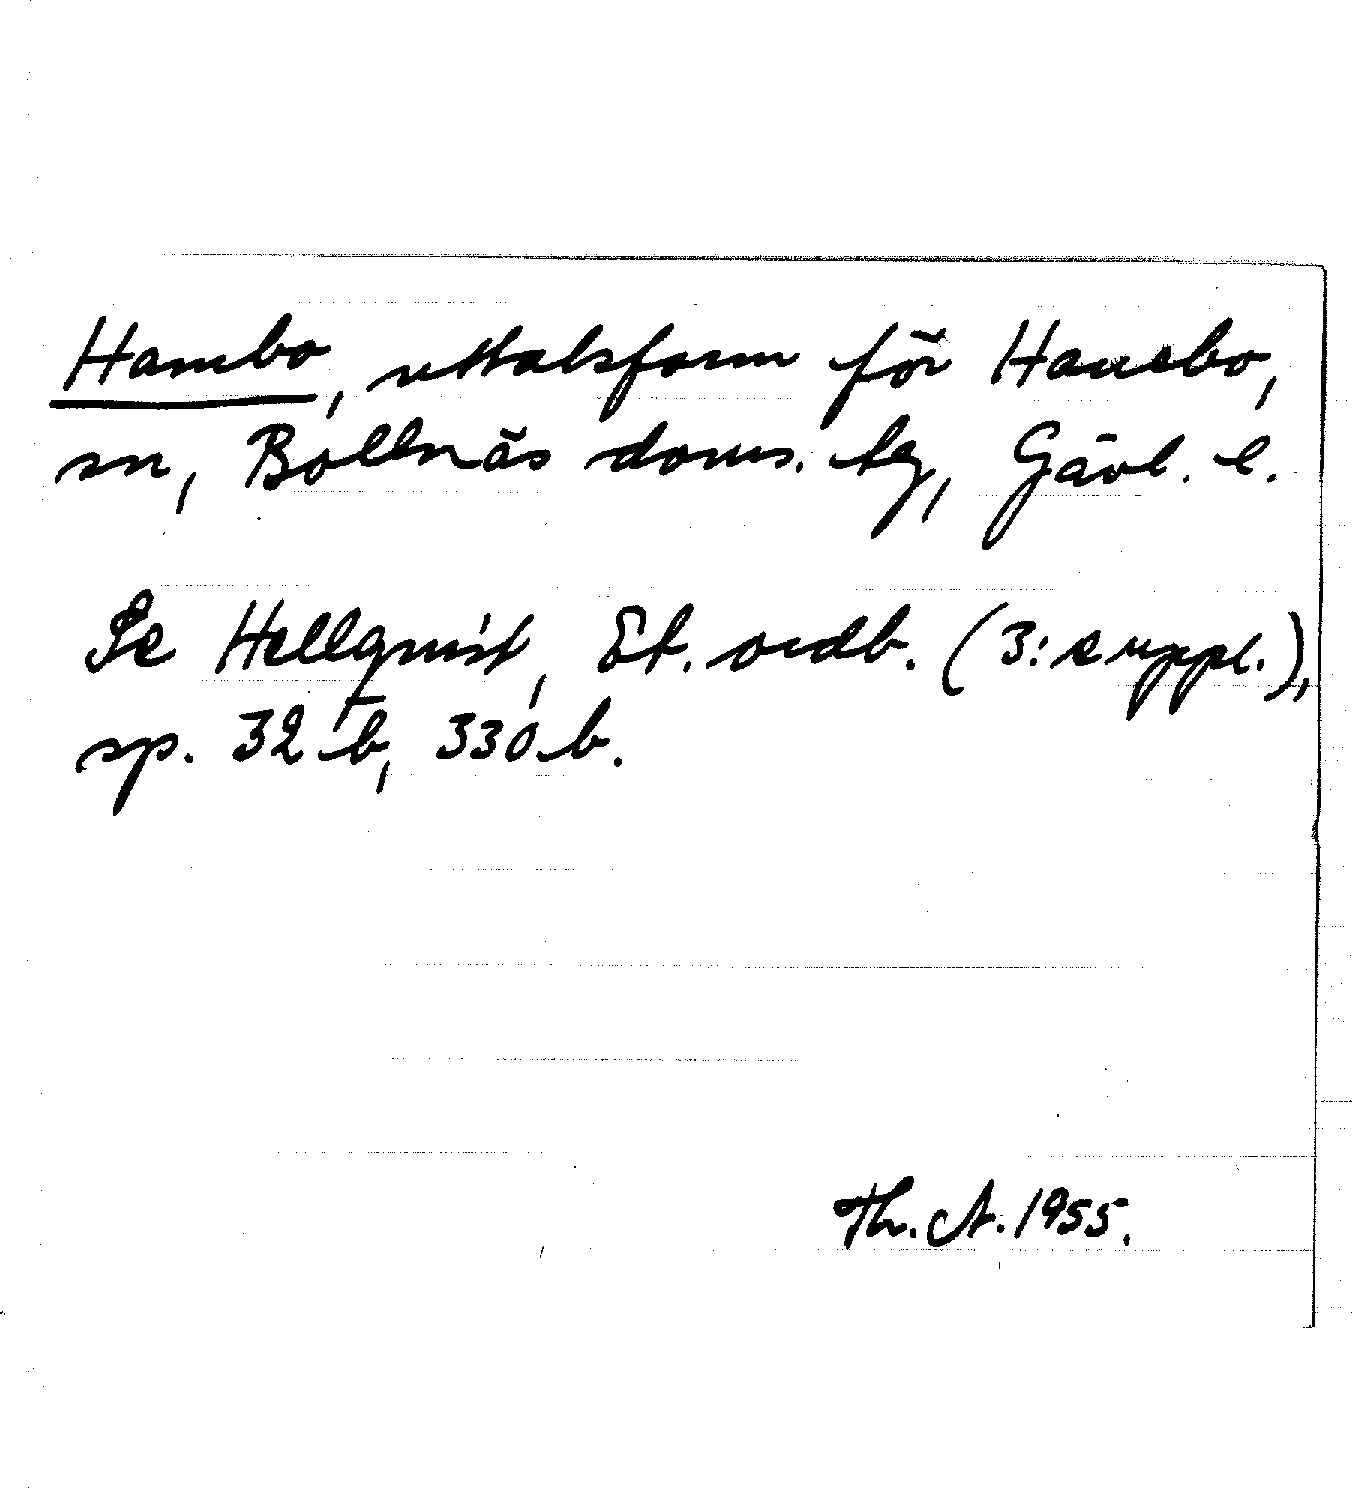 Hambo, uttalsform för Hanebo,
sn, Bollnäs doms. tg, Gävl. l.
Se Hellquist, Et. ordb. (3:e uppl.),
sp. 32 b, 330 b.
Th. A. 1955.